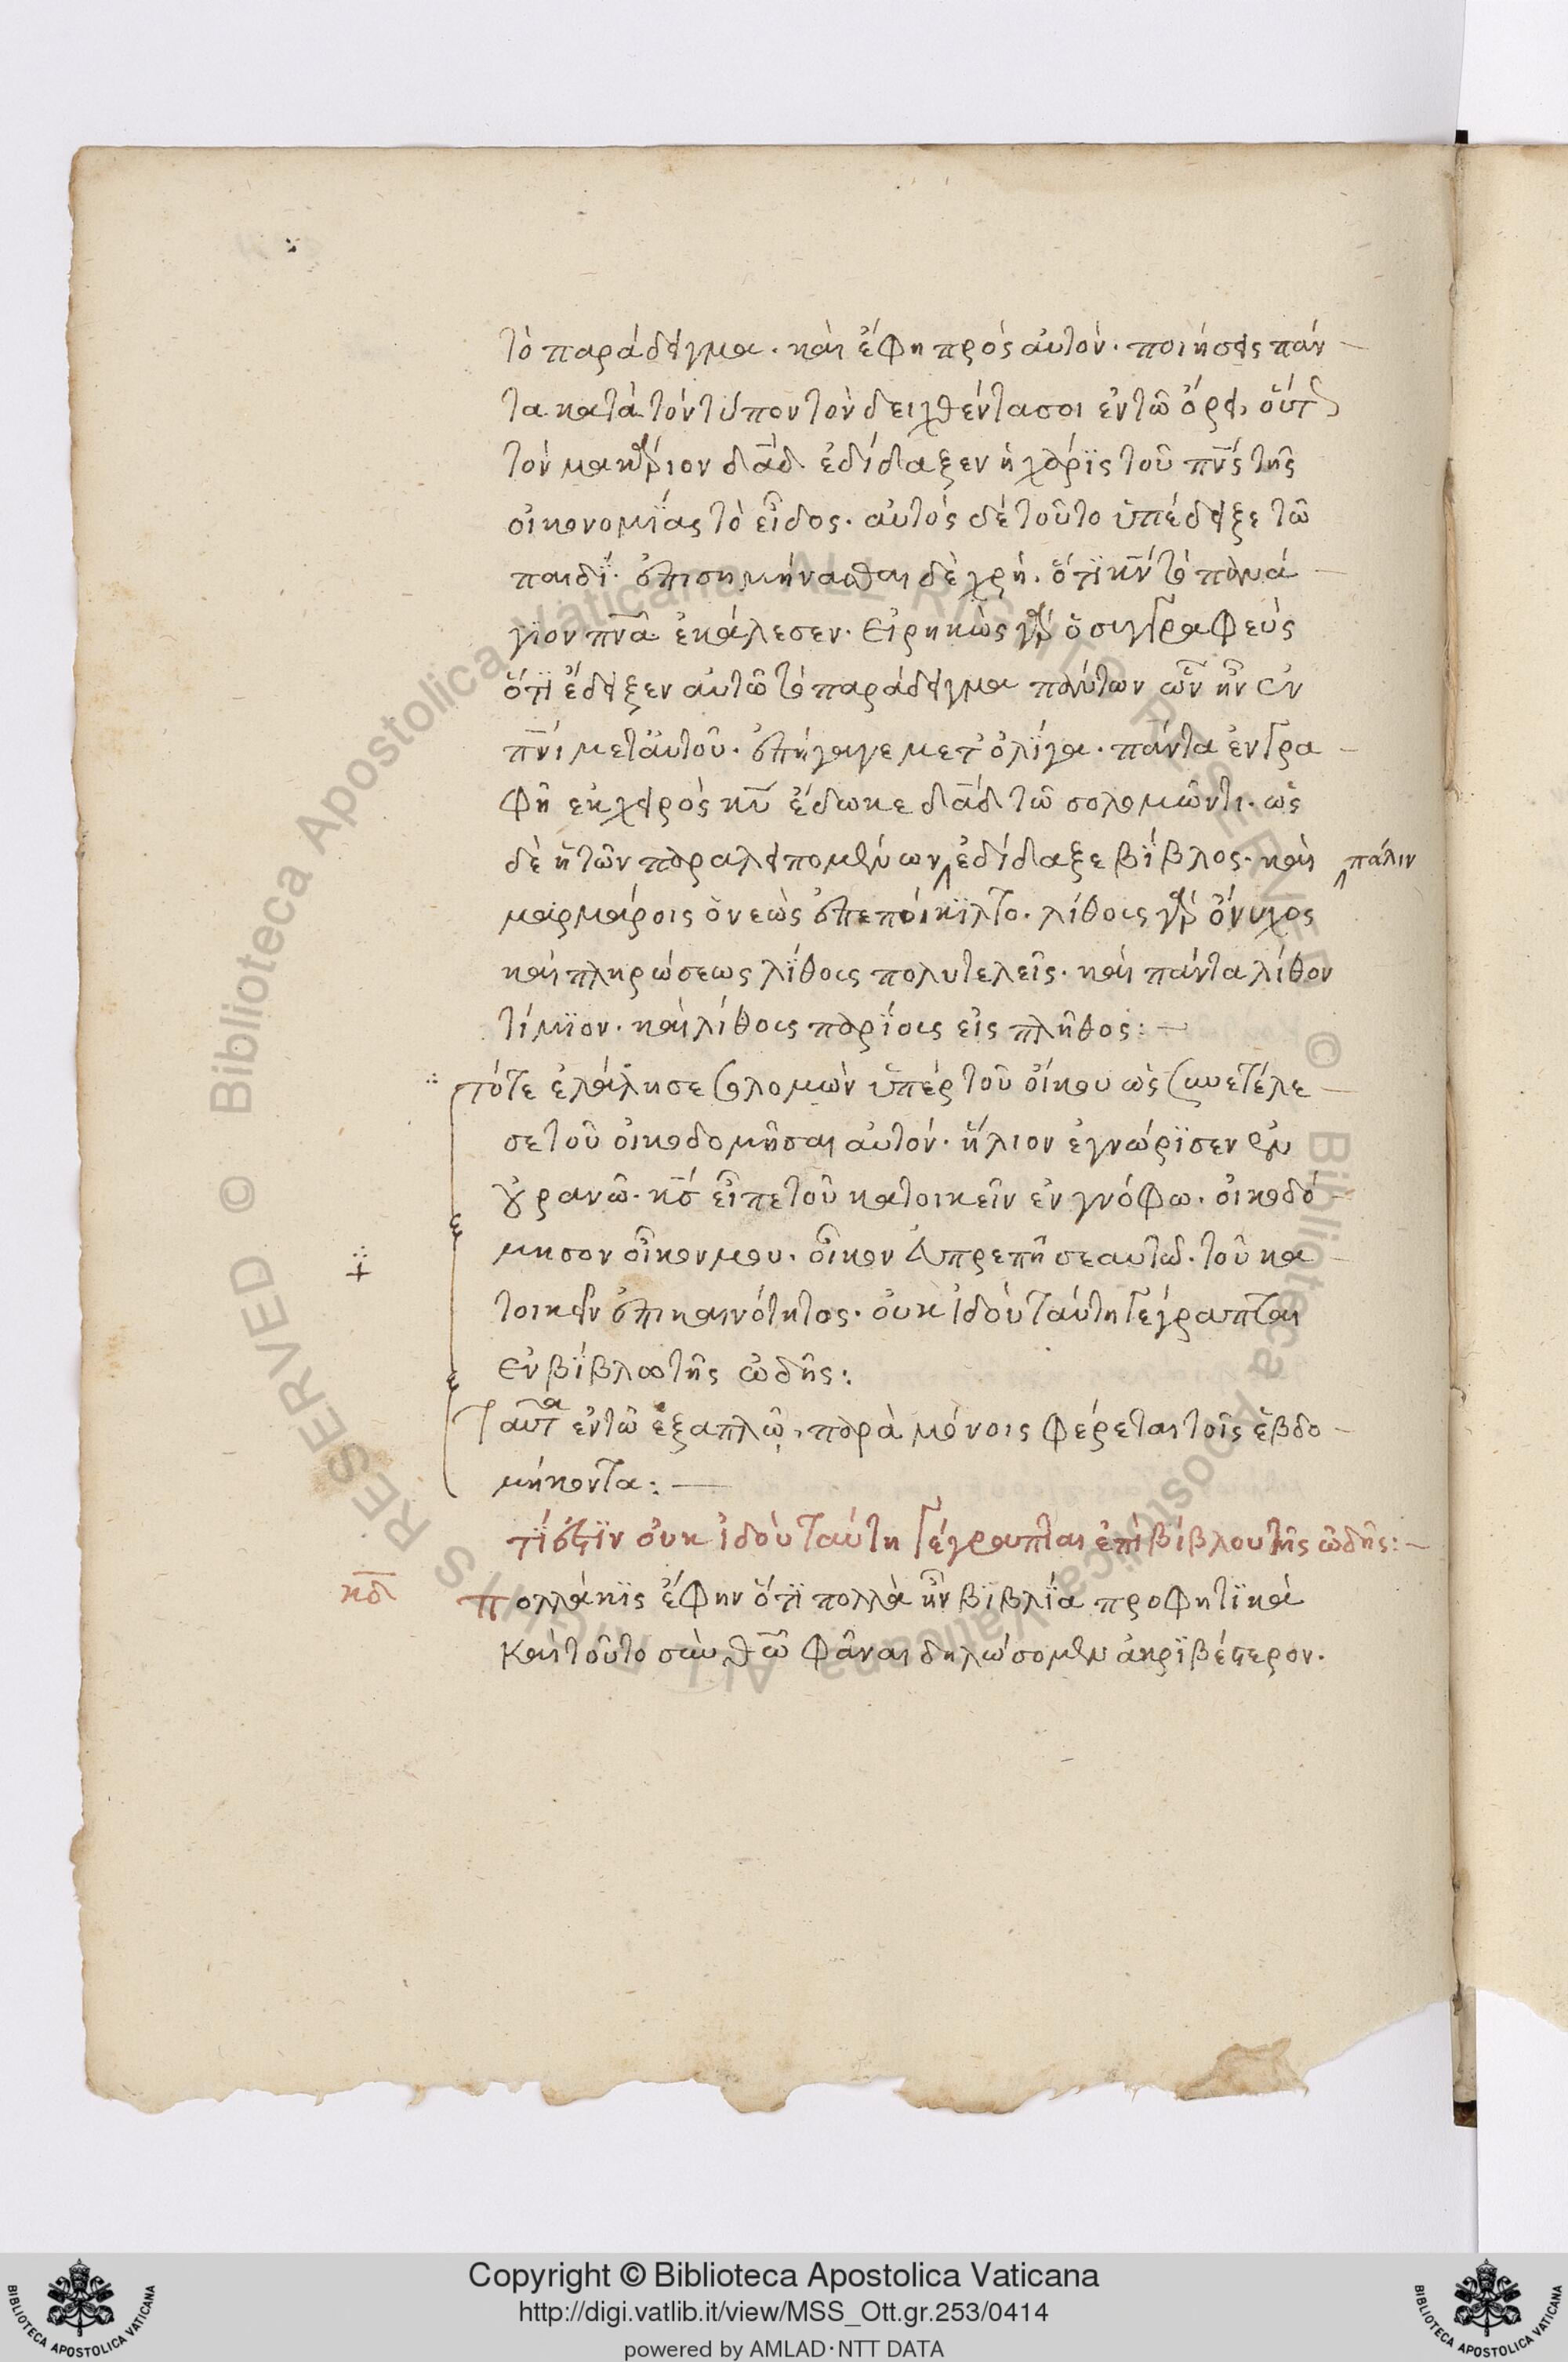 τὸ παράδειγμα. καὶ ἔφη πρὸς αὐτὸν. ποιήσεις πάν
τα κατὰ τὸν τύπον τὸν δειχθέντα σοι ἐν τῶ ὄρει, οὕτ
τὸν μακάριον δᾱδ ἐδίδαξεν ἡ χάρϊς τοῦ πν̅ς τῆς
οἰκονομϊας τὸ εἶδος. αὐτὸς δὲ τοῦτο ὑπέδειξε τῶ
παιδί. ἐπισημήνασθαι δὲ χρὴ. ὅτϊ κ̅ν τὸ πανά
γϊον πν̅α ἐκάλεσεν. εἰρηκὼς γὰρ ὁ συγγραφεὺς
ὅτϊ ἔδειξεν αὐτῶ τὸ παράδειγμα πάντων ὧν ἦν ἐν
πν̅ι μετ αὐτοῦ. ἐπήγαγε μετ' ὀλϊγα. πάντα ἐν γρα
φῆ ἐκ χειρὸς κ̅υ ἔδωκε δᾱδ τῶ σολομῶντι. ὡς
δὲ ἡ τῶν παραλειπομένων ἐδίδαξε βίβλος. καὶ πάλιν
μαρμάροις ὁ νεὼς ἐπεποίκϊλτο. λίθοις γὰρ ὄνυχος
καὶ πληρώσεως λϊθοις πολυτελεῖς. καὶ πάντα λίθον
τίμϊον. καὶ λίθοις παρϊοις εἰς πλῆθος:
τότε ἐλάλησε σολομὼν ὑπὲρ τοῦ οἴκου ὡς συνετέλε
σε τοῦ οἰκοδομῆσαι αὐτὸν. ἥλιον ἐγνώρϊσεν ἐν
οὐρανῶ. κ̅ς εἶπε τοῦ κατοικεῖν ἐν γνόφω. οἰκοδό
μησον οἶκον μου. οἶκον ἐυπρεπῆ σεαυτῶ. τοῦ κα
τοικεῖν ἐπι καινότητος. οὐκ ἰδοὺ ταύτη γέγραπται
ἐν βϊβλω τῆς ὠδῆς:
ταῦτα ἐν τῶ ἑξαπλῶ, παρὰ μόνοις φέρεται τοῖς ἑβδο
μήκοντα:
τϊ ἐστϊν οὐκ ἰδοὺ ταύτη γέγραπται ἐπὶ βίβλου τῆς ὠδῆς:
κδ πολλάκϊς ἔφην ὅτϊ πολλὰ ἦν βϊβλϊα προφητϊκὰ
καὶ τοῦτο σὺν θῶ φάναι δηλώσομεν ἀκρϊβέστερον.
Copyright © Biblioteca Apostolica Vaticana
http://digi.vatlib.it/view/MSS_Ott.gr.253/0414
powered by AMLAD·NTT DATA